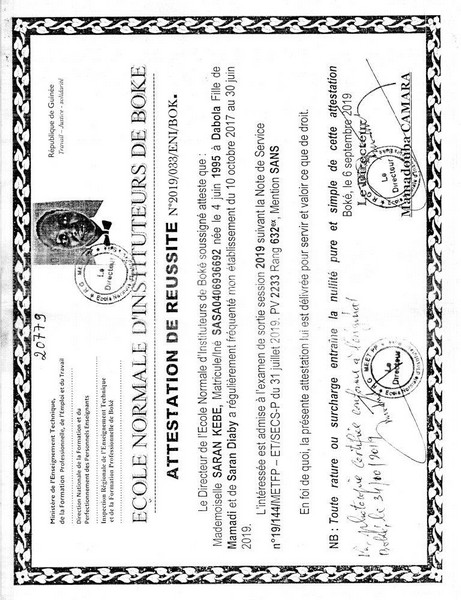 Ministère de l'Enseignement Technique,
de la Formation Professionnelle, de l'Emploi et du Travail
Direction Nationale de la Formation et du
Perfectionnement des Personnels Enseignants
Inspection Régionale de l'Enseignement Technique
et de la Formation Professionnelle de Boké
20779
République de Guinée
Travail – Justice - solidarité
Le
Directeur
ECOLE NORMALE D'INSTITUTEURS DE BOKE
ATTESTATION DE REUSSITE N°2019/033/ENI/BOK.
Le Directeur de l'Ecole Normale d'Instituteurs de Boké soussigné atteste que :
Mademoiselle SARAN KEBE, Matricule/Iné SASA0406936692 née le 4 juin 1995 à Dabola Fille de
Mamadi et de Saran Diaby a régulièrement fréquenté mon établissement du 10 octobre 2017 au 30 juin
2019.
L'intéressée est admise à l'examen de sortie session 2019 suivant la Note de Service
n°19/144/METFP – ET/SECS-P du 31 juillet 2019, PV 2233 Rang 632ex, Mention SANS
En foi de quoi, la présente attestation lui est délivrée pour servir et valoir ce que de droit.
NB : Toute rature ou surcharge entraîne la nullité pure et simple de cette attestation
Boké, le 6 septembre 2019
Le Directeur
Le
Directeur
Mamadonna CAMARA
Photocopie certifiée conforme à l'original
Boké, le 31/10/2019
Le
Directeur